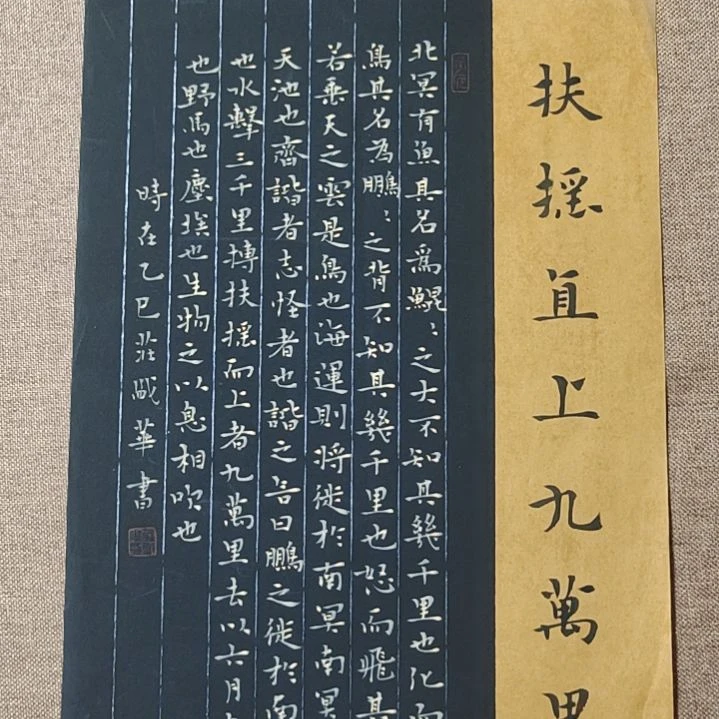 扶摇直上九萬里
北冥有魚其名為鯤〻之大不知其幾千里也化而
鳥其名為鵬〻之背不知其幾千里也怒而飛其
若乗天之雲是鳥也海運則将徙於南冥南冥
天池也齊諧者志怪者也諧之言曰鵬之徙於南
也水擊三千里摶扶摇而上者九萬里去以六月
也野馬也塵埃也生物之以息相吹也
時在乙巳莊
華書